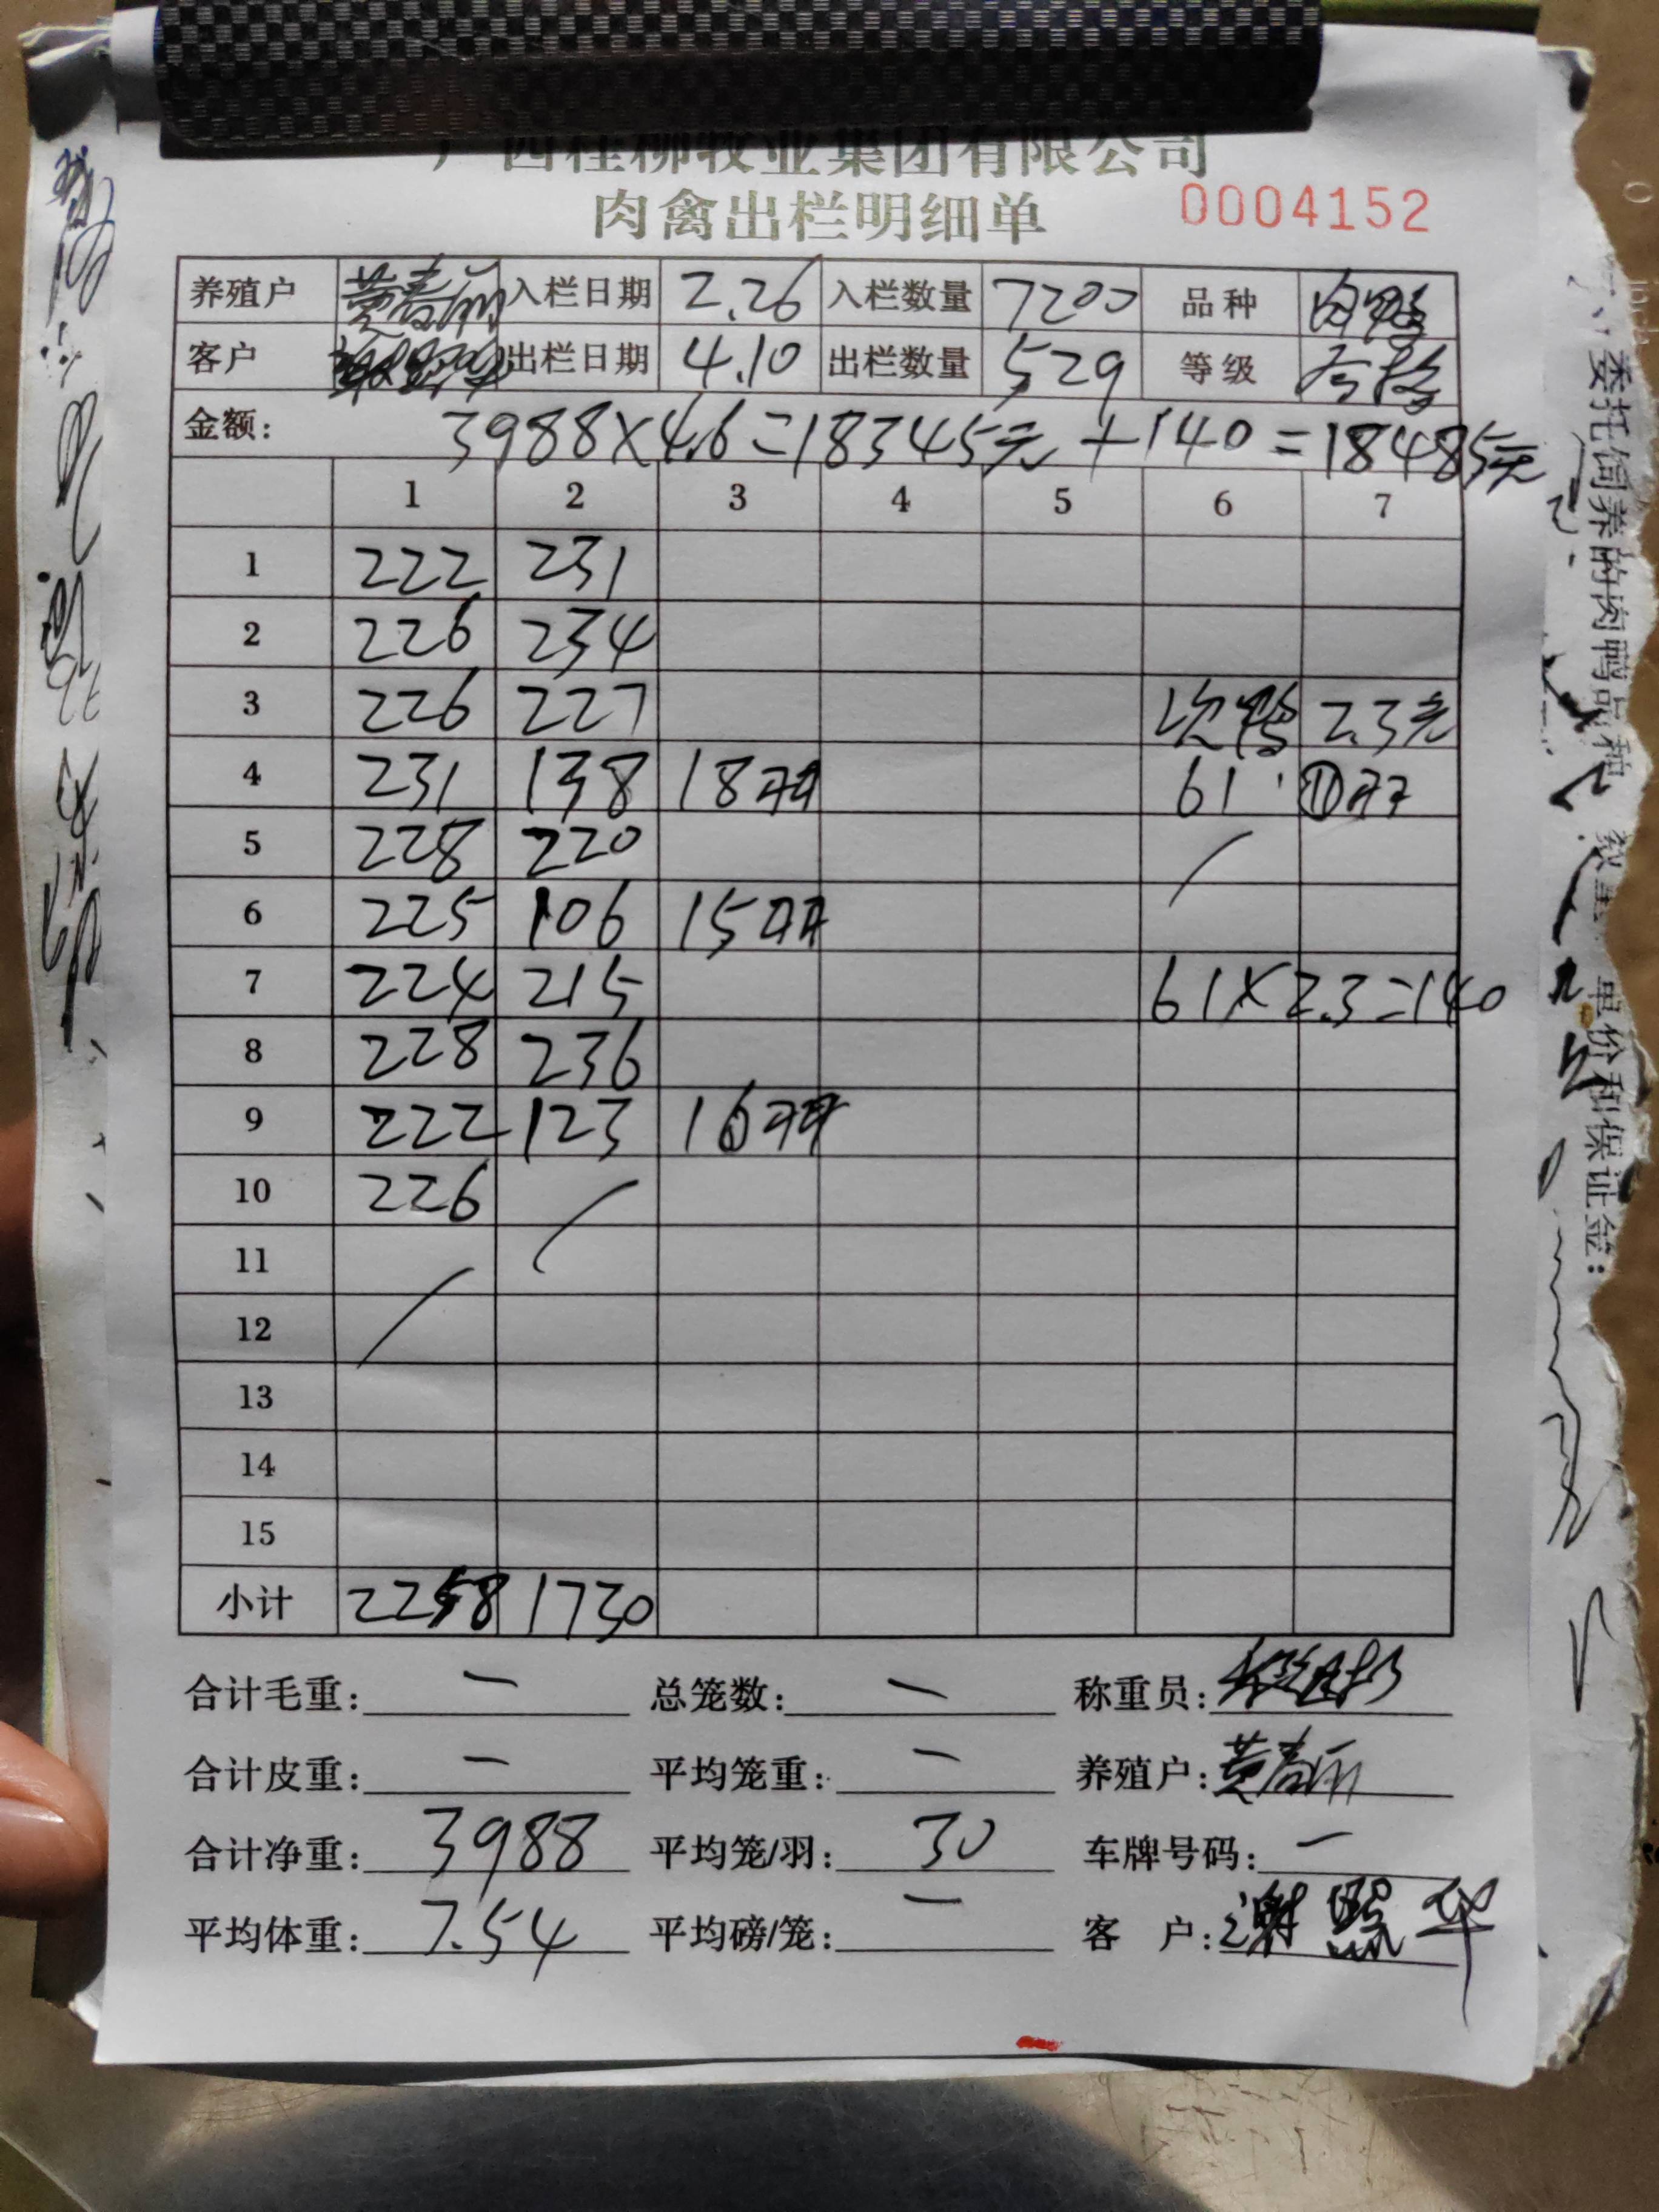 广西桂柳牧业集团有限公司
肉禽出栏明细单 0004152
养殖户 黄春丽 入栏日期 2.26 入栏数量 7200 品种 肉鸭
客户 出栏日期 4.10 出栏数量 529 等级 合格
金额: 3988×4.6=18345元+140=18485元
1 2 3 4 5 6 7
1 222 231
2 226 234
3 226 227 次鸭 2.3元
4 231 138 18羽 61 ⑪羽
5 228 220
6 225 106 15羽
7 224 215 61×2.3=140
8 228 236
9 222 123 16羽
10 226
11
12
13
14
15
小计 2258 1730
合计毛重: — 总笼数: — 称重员:
合计皮重: — 平均笼重: — 养殖户: 黄春丽
合计净重: 3988 平均笼/羽: 30 车牌号码: —
平均体重: 7.54 平均磅/笼: — 客 户: 谢 华
委托饲养的肉鸭品种 数量 单价和保证金: